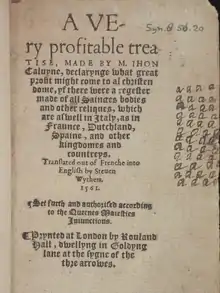 A VE-
ry profitable trea-
TISE, MADE BY M. IHON
Caluyne, declarynge what great
profit might come to al christen
dome, yf there were a regester
made of all Sainctes bodies
and other reliques, which
are aswell in Italy, as in
Fraunce, Dutchland,
Spaine, and other
kingdomes and
countreys.
Translated out of Frenche into
English by Steuen
Wythers.
1561.
Set furth and authorised according
to the Queenes Maiesties
Iniunctions.
Prynted at London by Rouland
Hall, dwellyng in Goldyng
lane at the sygne of the
thre arrowes.